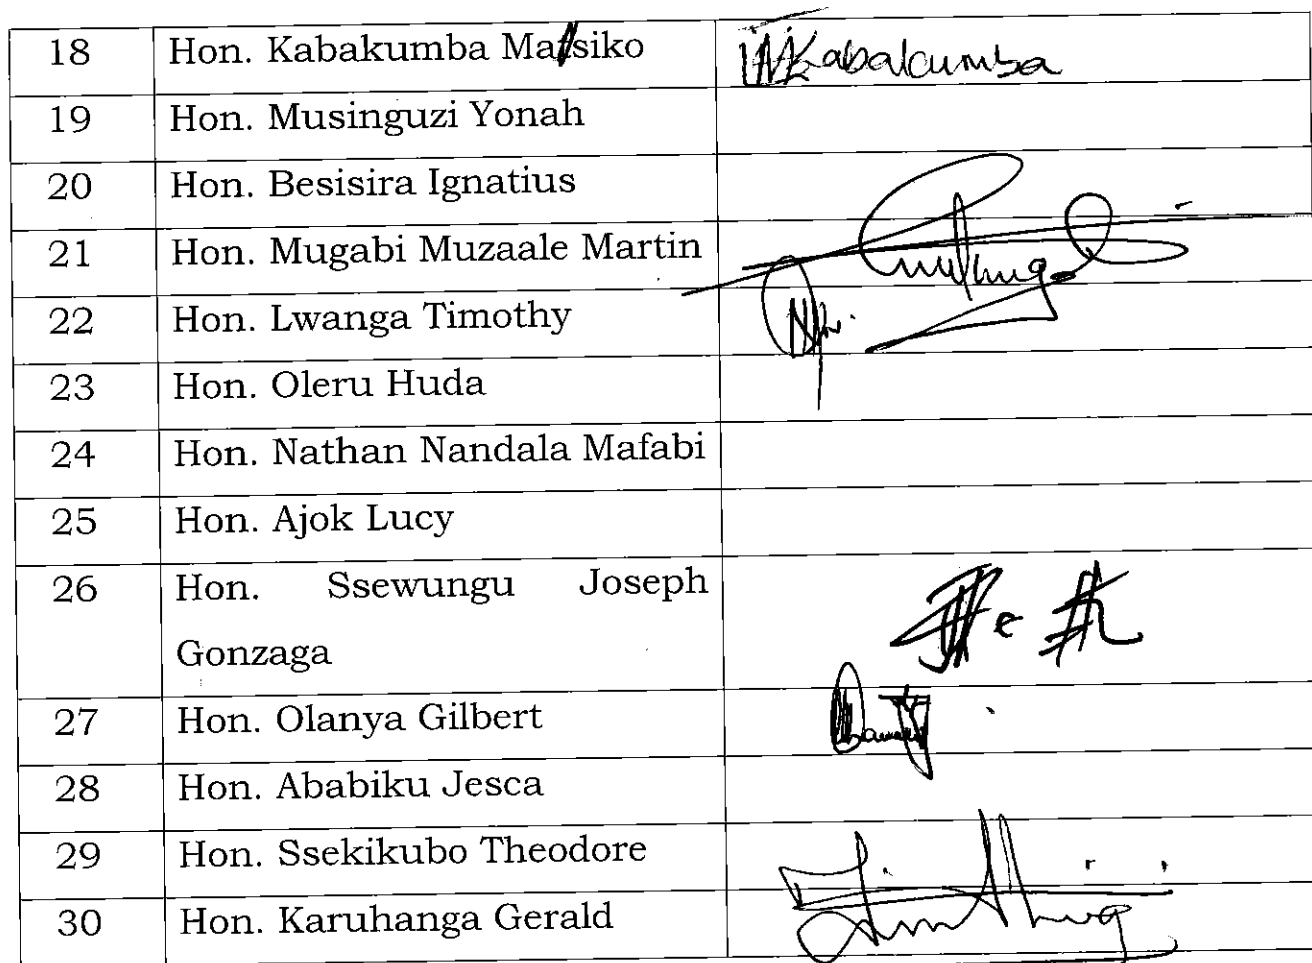 18 Hon. Kabakumba Matsiko Kabakumba
19 Hon. Musinguzi Yonah
20 Hon. Besisira Ignatius
21 Hon. Mugabi Muzaale Martin
22 Hon. Lwanga Timothy
23 Hon. Oleru Huda
24 Hon. Nathan Nandala Mafabi
25 Hon. Ajok Lucy
26 Hon. Ssewungu Joseph
Gonzaga
27 Hon. Olanya Gilbert
28 Hon. Ababiku Jesca
29 Hon. Ssekikubo Theodore
30 Hon. Karuhanga Gerald